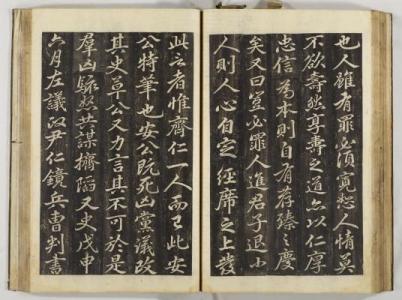 也人雖有罪必須寬恕人情莫
不欲壽然享壽之道亦以仁厚
忠信為本則自有荐臻之慶
矣又曰豈必罪人進君子退小
人則人心自定經席之上發
此言者惟齊仁一人而已此安
公特筆也安公既死凶黨議改
其史草公又力言其不可於是
羣凶駭怒共謀擠陷又史戊申
六月左議政尹仁鏡兵曹判書